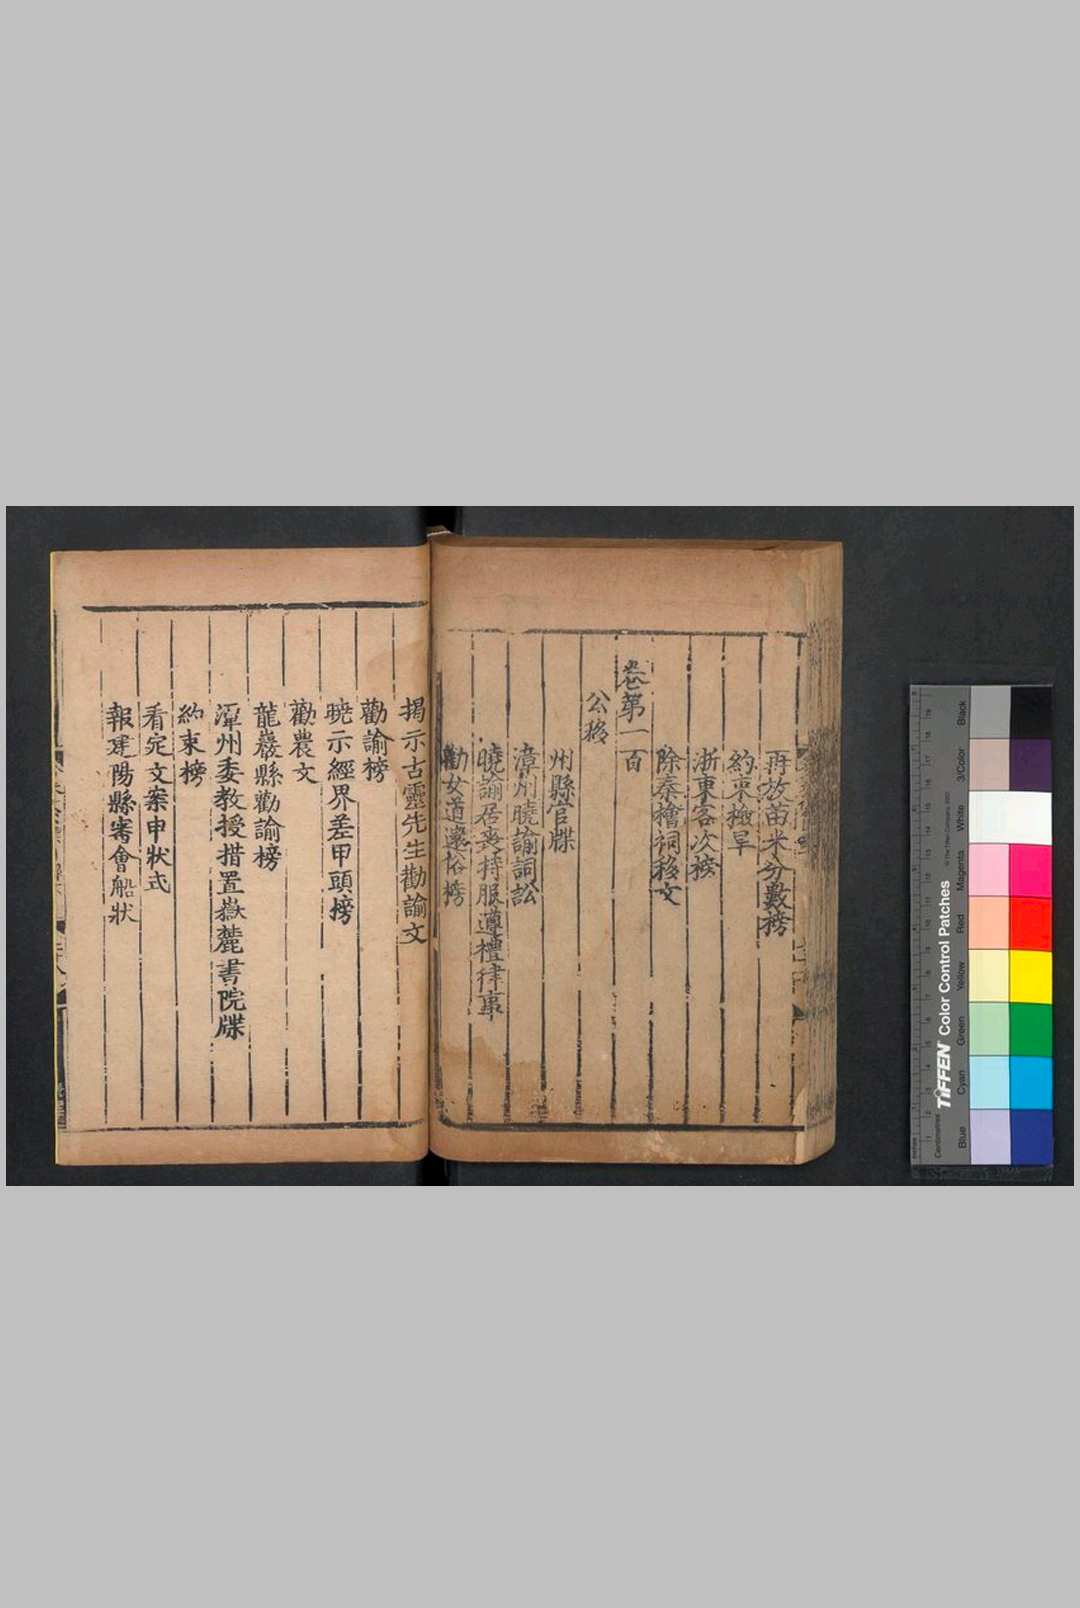 再放苗米分數榜
約束檢旱
浙東客次榜
除秦檜祠移文
卷第一百
公移
州縣官牒
漳州曉諭詞訟
曉諭居喪持服遵禮律事
勸女道還俗榜
揭示古靈先生勸諭文
勸諭榜
曉示經界差甲頭榜
勸農文
龍巖縣勸諭榜
潭州委教授措置嶽麓書院牒
約束榜
看定文案申狀式
報建陽縣審會船狀
TIFFEN Color Control Patches
© The Tiffen Company, 2007
Centimetres
Inches
Blue
Cyan
Green
Yellow
Red
Magenta
White
3/Color
Black